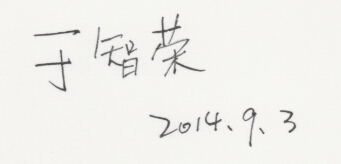 于智荣
2014.9.3